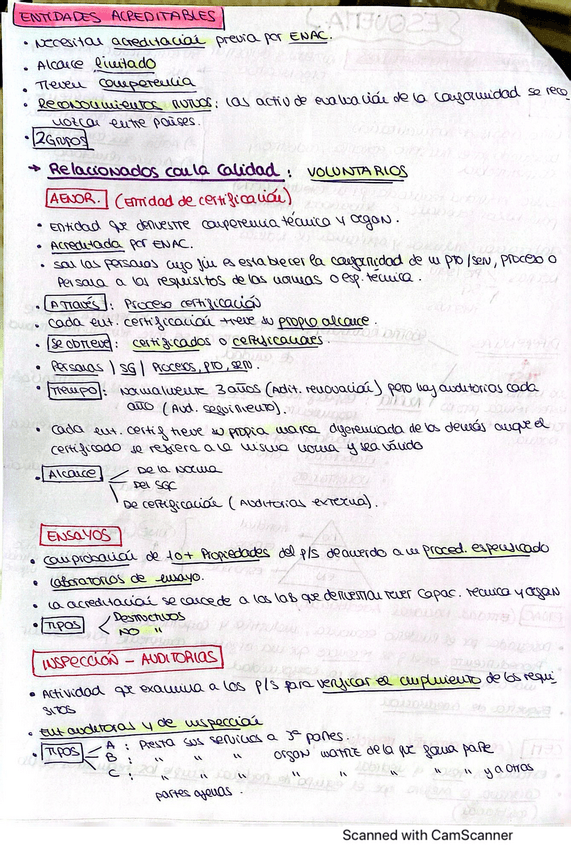 ENTIDADES ACREDITABLES
· Necesitan acreditación previa por ENAC.
· Alcance limitado
· Tienen competencia
· Reconocimientos mutuos: las activ de evaluación de la conformidad se reco
nozcan entre países.
· 2 Grupos
→ Relacionados con la Calidad: VOLUNTARIOS
AENOR. (Entidad de certificación)
· Entidad que demuestre competencia técnica y organ.
· Acreditada por ENAC.
· Son las personas cuyo fin es establecer la conformidad de un pto/serv, proceso o
persona a los requisitos de las normas o esp. técnica.
· A TRAVÉS: Proceso certificación
· Cada ent. certificación tiene su propio alcance.
· Se obtiene: certificados o certificaciones.
· Personas / SG / Procesos, PTO, SERV.
· Tiempo: Normalmente 3 años (Adit. renovación) pero hay auditorías cada
año (Aud. seguimiento).
· Cada ent. certif tiene su propia marca diferenciada de los demás aunque el
certificado se refiera a la misma norma y sea válido
· Alcance
De la Norma
Del SGC
De certificación (Auditorías externa).
ENSAYOS
· Comprobación de 1 o + Propiedades del p/s de acuerdo a un Proced. especificado
· Laboratorios de ensayo.
· La acreditación se concede a los lab que demuestran tener capac. técnica y organ
· TIPOS
Destructivos
NO "
INSPECCIÓN - AUDITORIAS
· Actividad que examina a los p/s para verificar el cumplimiento de los requi
sitos
· Ent auditoras y de inspección
· TIPOS
A : Presta sus servicios a 3ª partes.
B : " " " organ matriz de la que forma parte
C : " " " " " " " y a otras
partes ajenas.
Scanned with CamScanner